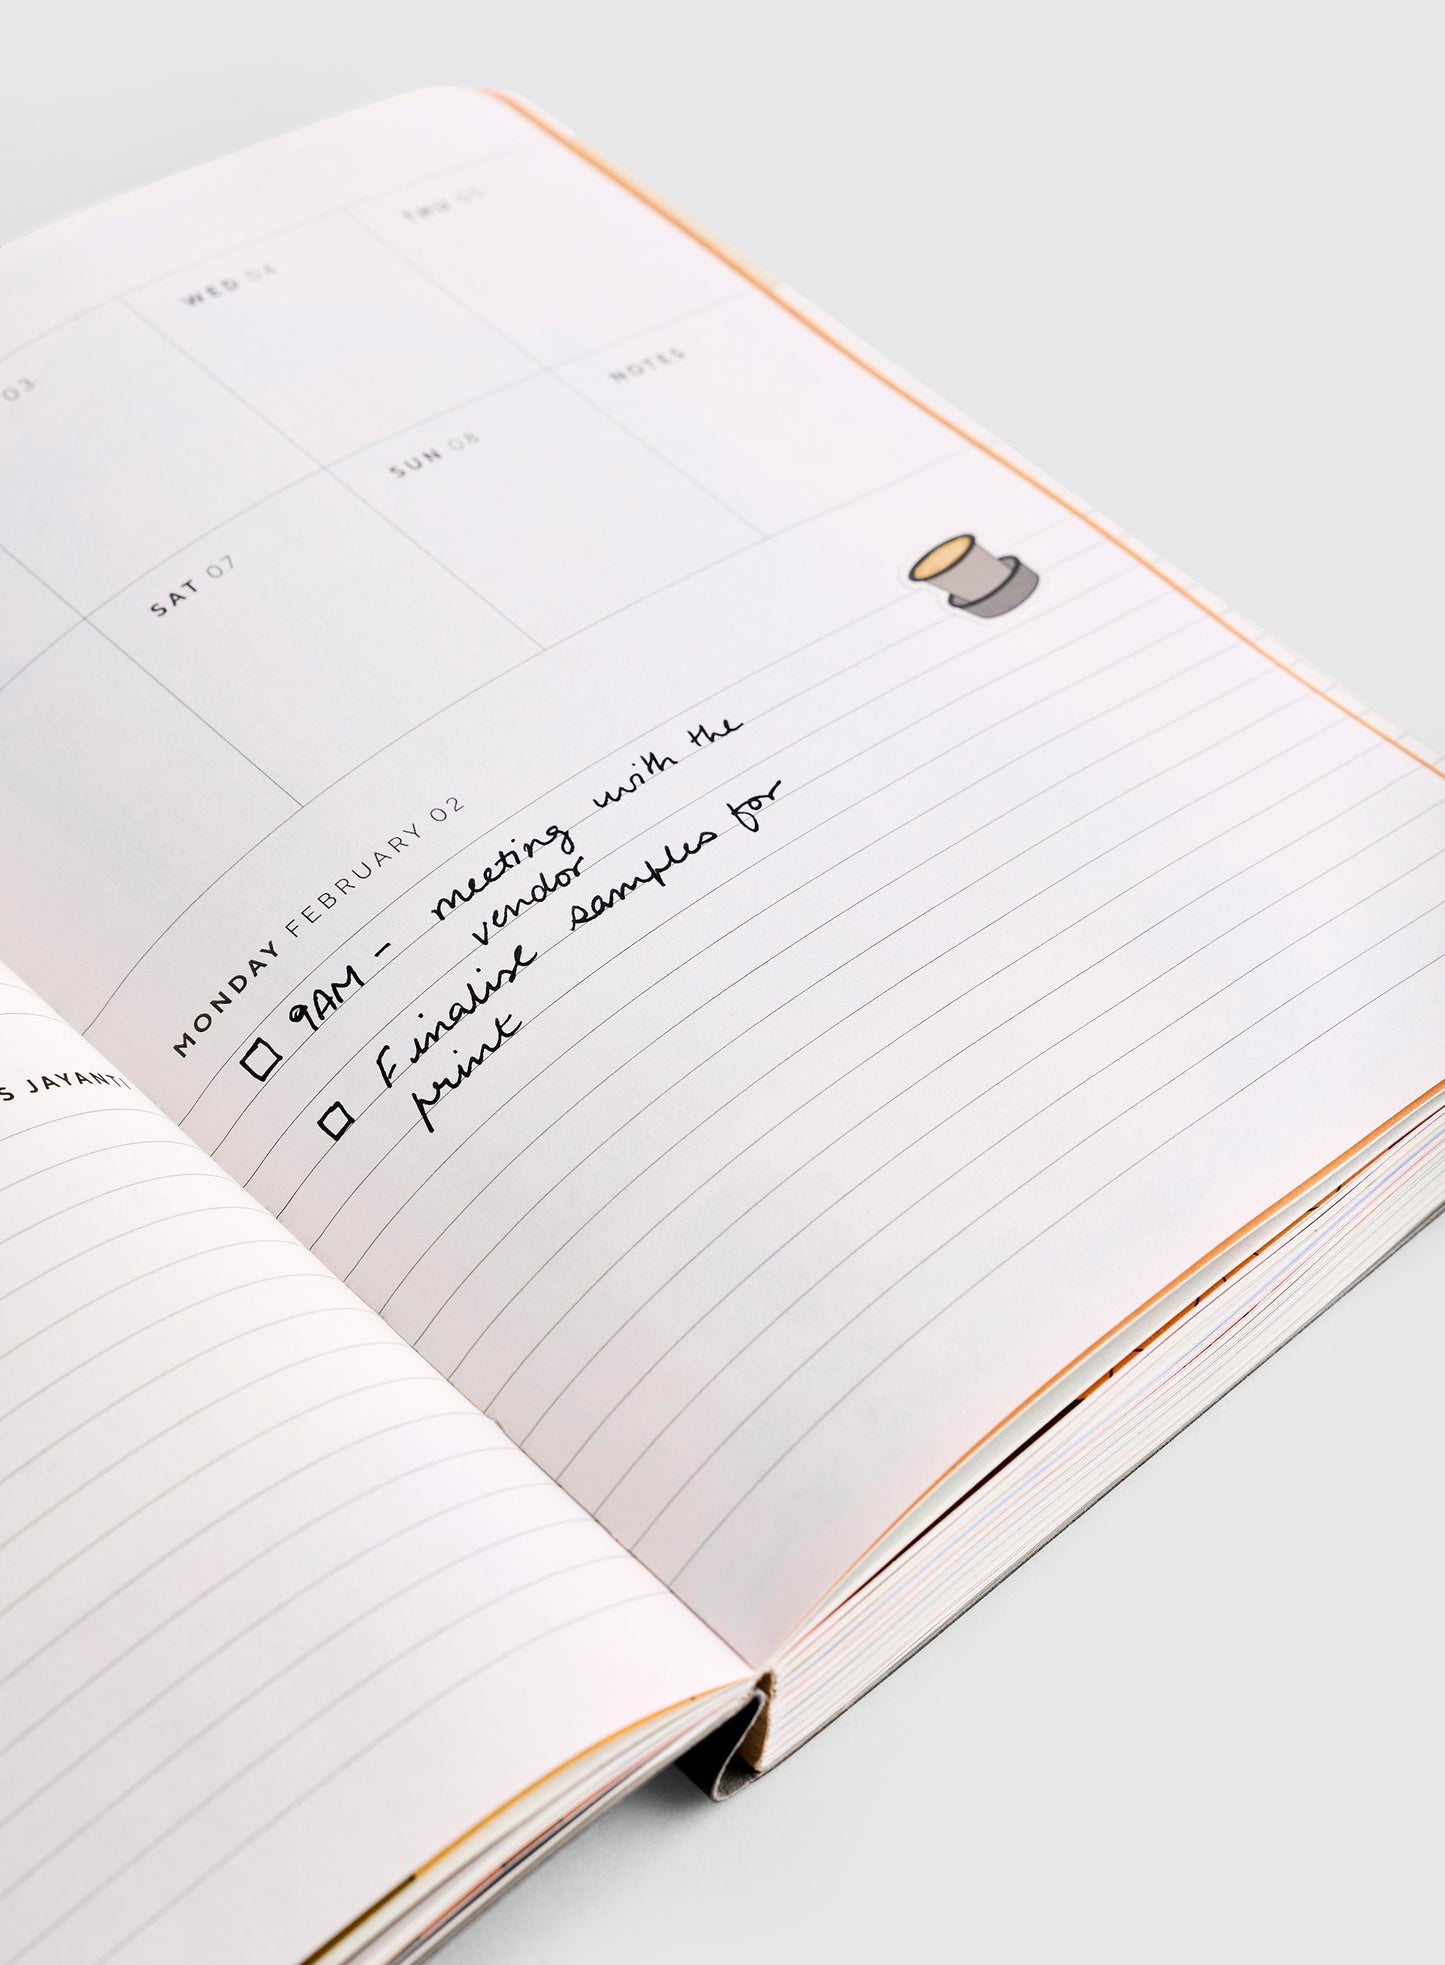 03
WED 04
THU 05
SAT 07
SUN 08
NOTES
MONDAY FEBRUARY 02
9AM - meeting with the
vendor
Finalise samples for
print
S JAYANTI